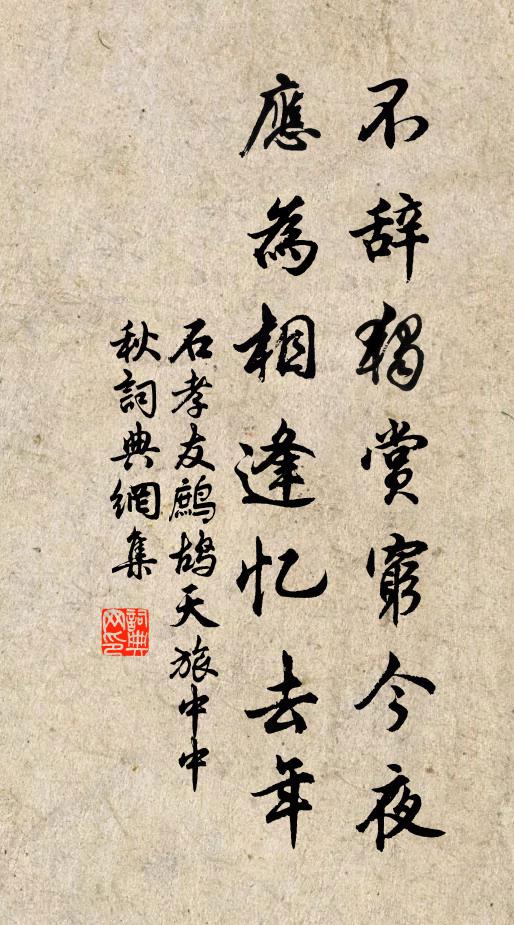 不辞独赏穷今夜
應為相逢忆去年
石孝友鷓鴣天旅中中
秋詞典網集
詞典网印